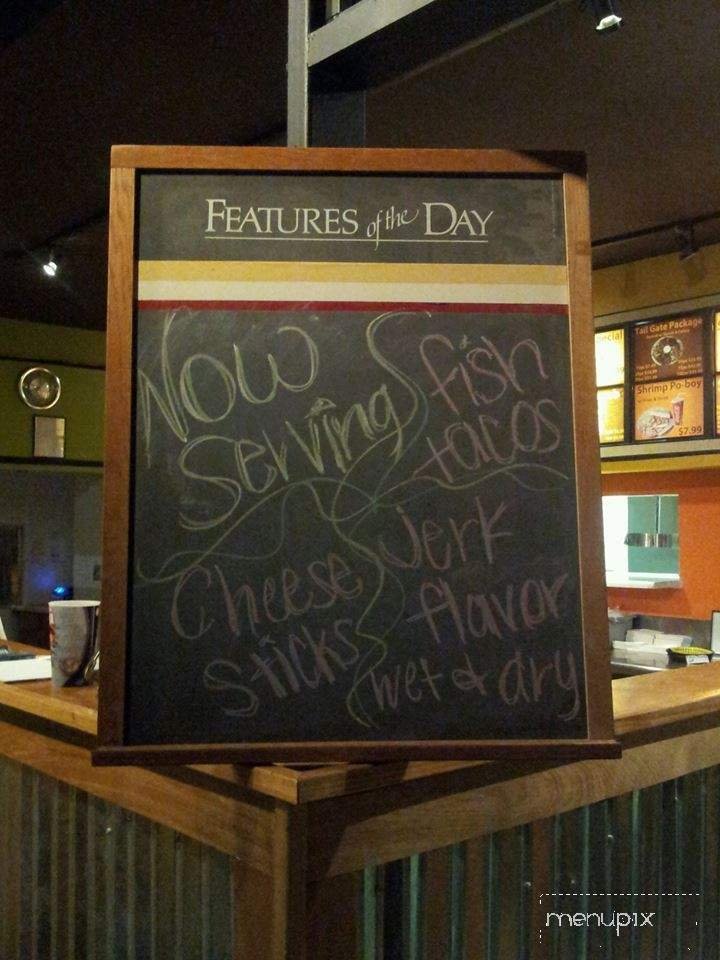 FEATURES of the DAY
Now
Serving
fish
tacos
Cheese
sticks
Jerk
flavor
wet & dry
Tail Gate Package
Shrimp Po-boy
$7.99
menupix